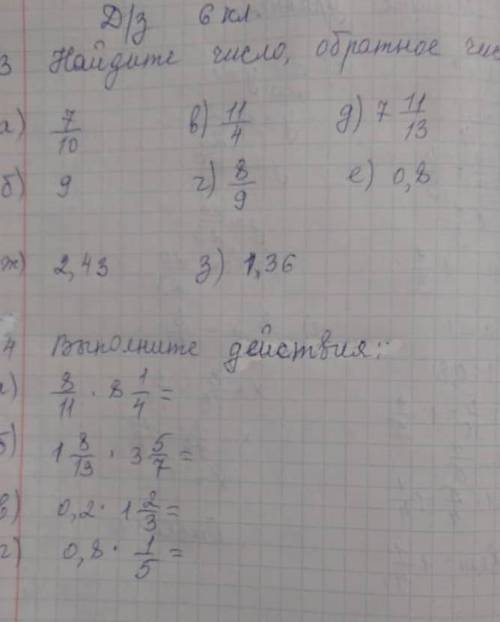 Д/з 6 кл
3 Найдите число, обратное чис
а) 7/10 в) 11/4 д) 7 11/13
б) 9 г) 8/9 е) 0,8
ж) 2,43 з) 1,36
4 Выполните действия:
а) 8/11 · 8 1/4 =
б) 1 8/13 · 3 5/7 =
в) 0,2 · 1 2/3 =
г) 0,8 · 1/5 =